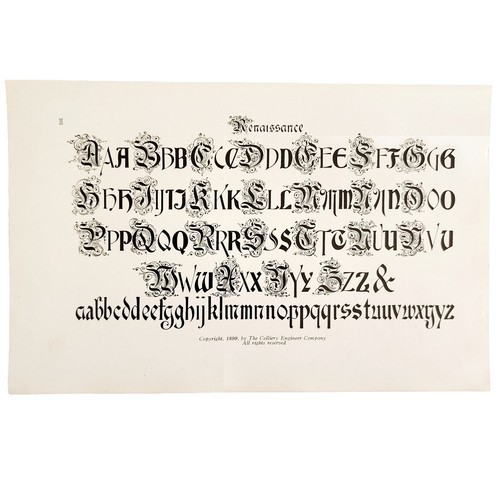 Renaissance
AAA BBB CCC DDD EEE FFF GGG
HHH IIJJ KKK LLL MMM NNN OOO
PPP QQQ RRR SSS TTT UUU VVU
WWW XXX YYY ZZZ &
aabbcddeefgghijklmmnnoppqqrsstuuvwxyyz
Copyright, 1899, by The Colliery Engineer Company
All rights reserved